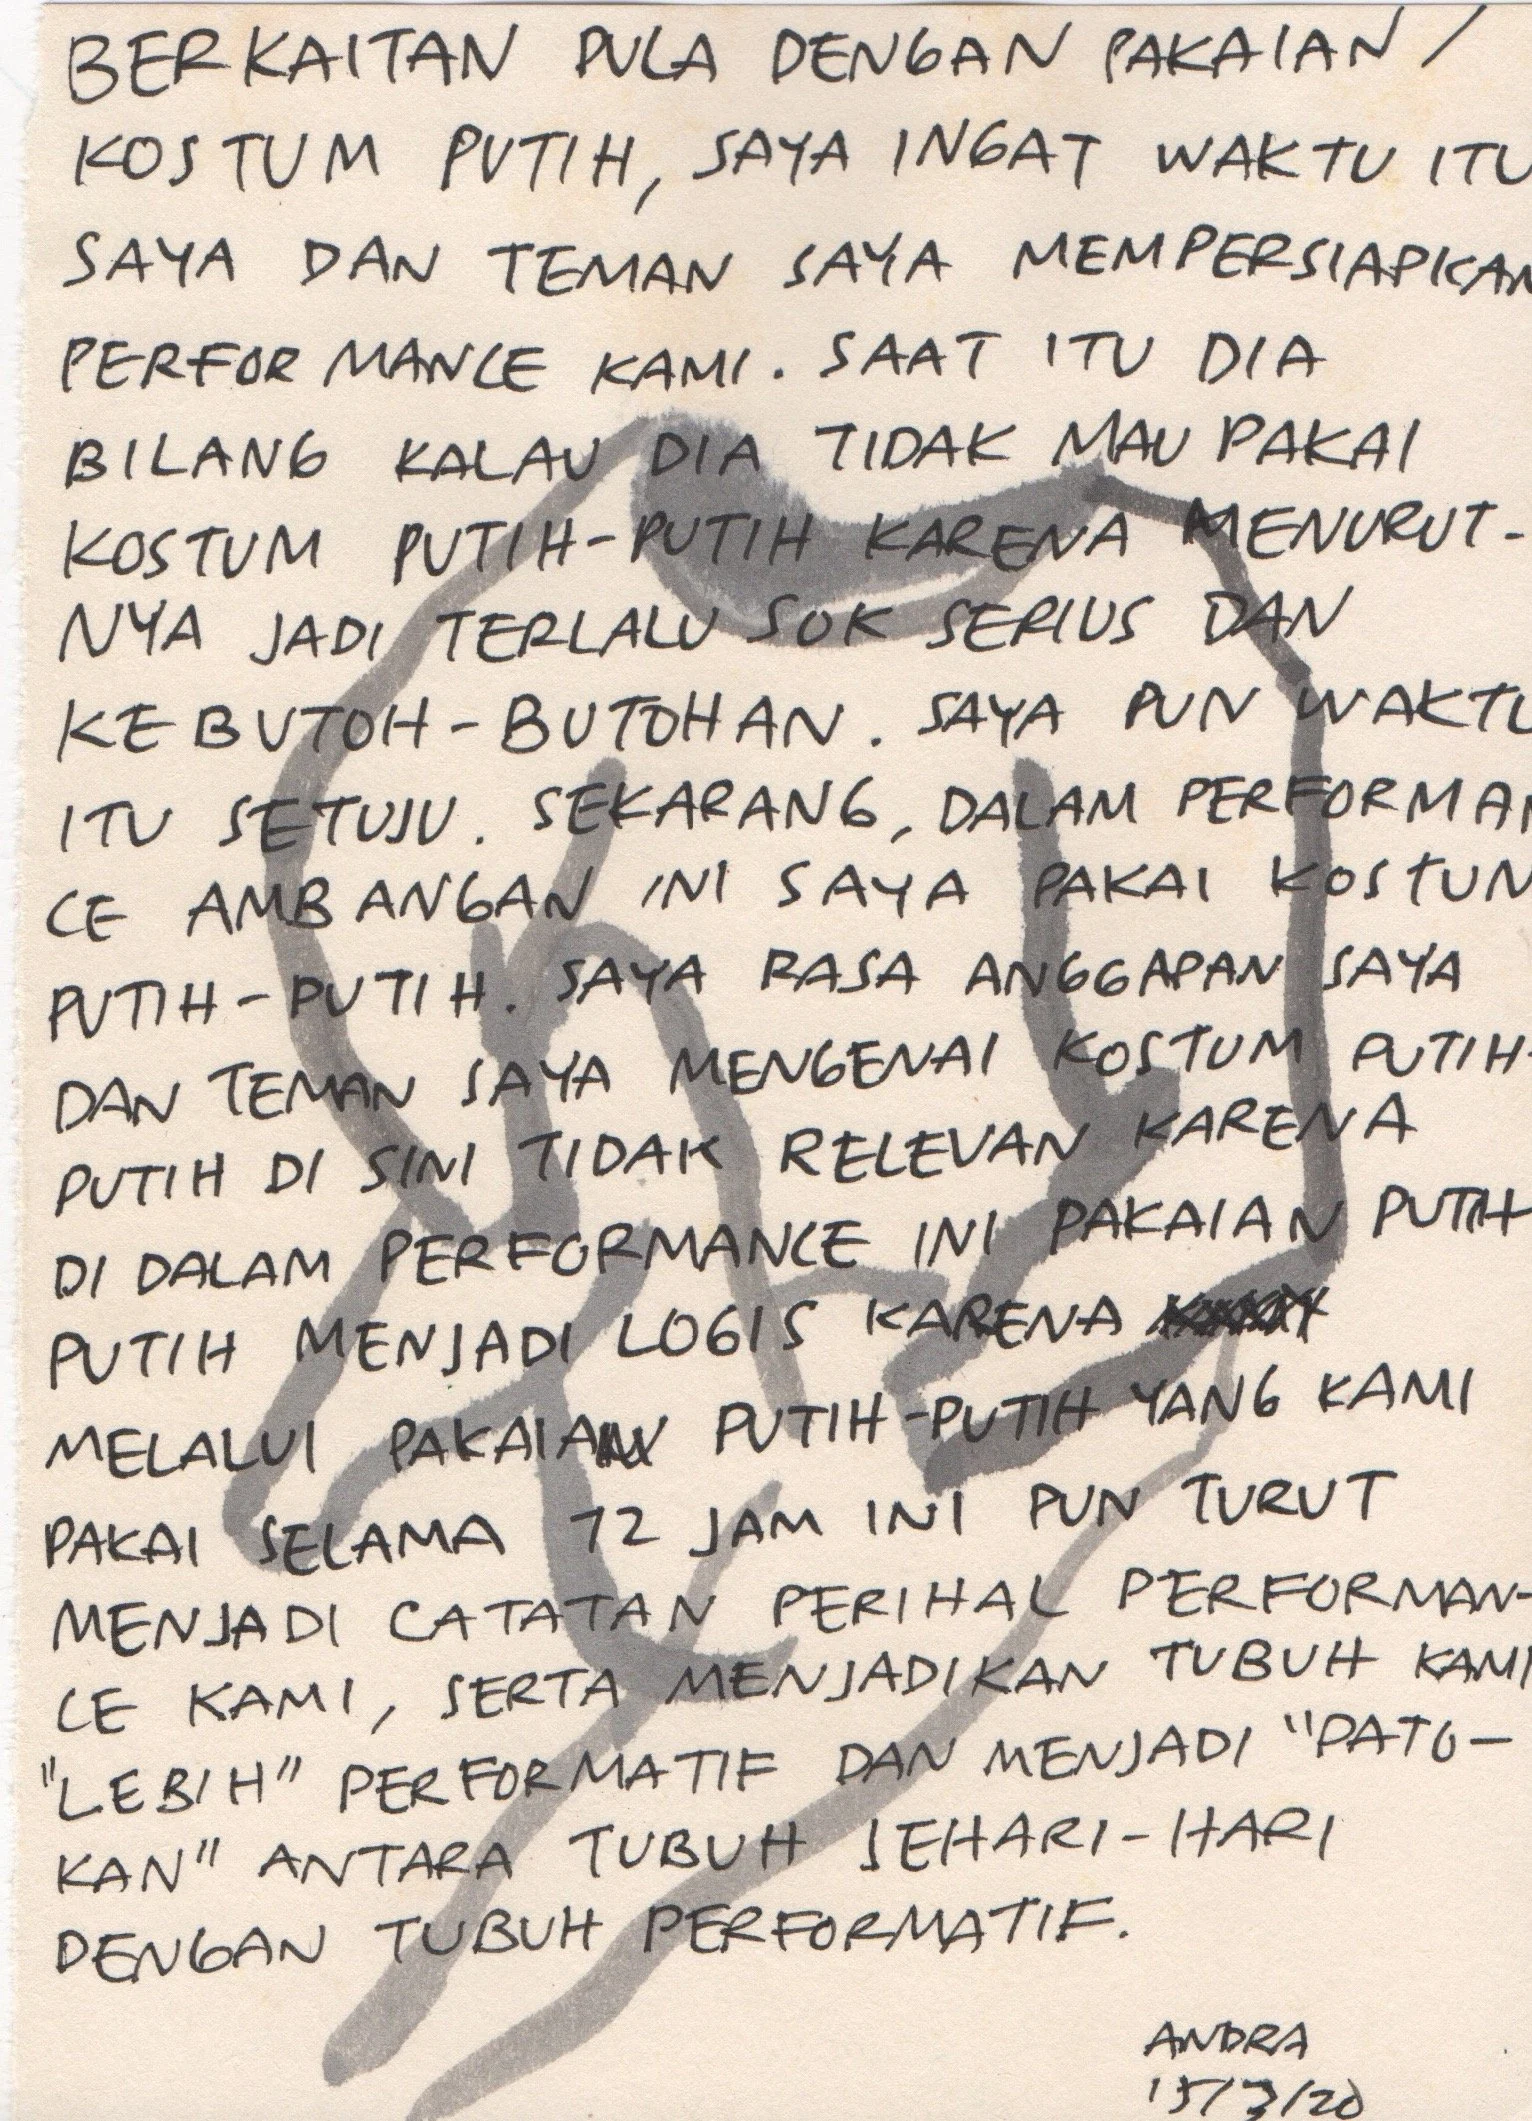 BERKAITAN PULA DENGAN PAKAIAN /
KOSTUM PUTIH, SAYA INGAT WAKTU ITU
SAYA DAN TEMAN SAYA MEMPERSIAPKAN
PERFORMANCE KAMI. SAAT ITU DIA
BILANG KALAU DIA TIDAK MAU PAKAI
KOSTUM PUTIH-PUTIH KARENA MENURUT-
NYA JADI TERLALU SOK SERIUS DAN
KEBUTOH-BUTOHAN. SAYA PUN WAKTU
ITU SETUJU. SEKARANG, DALAM PERFORMAN
CE AMBANGAN INI SAYA PAKAI KOSTUM
PUTIH-PUTIH. SAYA RASA ANGGAPAN SAYA
DAN TEMAN SAYA MENGENAI KOSTUM PUTIH-
PUTIH DI SINI TIDAK RELEVAN KARENA
DI DALAM PERFORMANCE INI PAKAIAN PUTIH
PUTIH MENJADI LOGIS KARENA
MELALUI PAKAIAN PUTIH-PUTIH YANG KAMI
PAKAI SELAMA 12 JAM INI PUN TURUT
MENJADI CATATAN PERIHAL PERFORMAN-
CE KAMI, SERTA MENJADIKAN TUBUH KAMI
"LEBIH" PERFORMATIF DAN MENJADI "PATO-
KAN" ANTARA TUBUH SEHARI-HARI
DENGAN TUBUH PERFORMATIF.
ANDRA
15/3/20